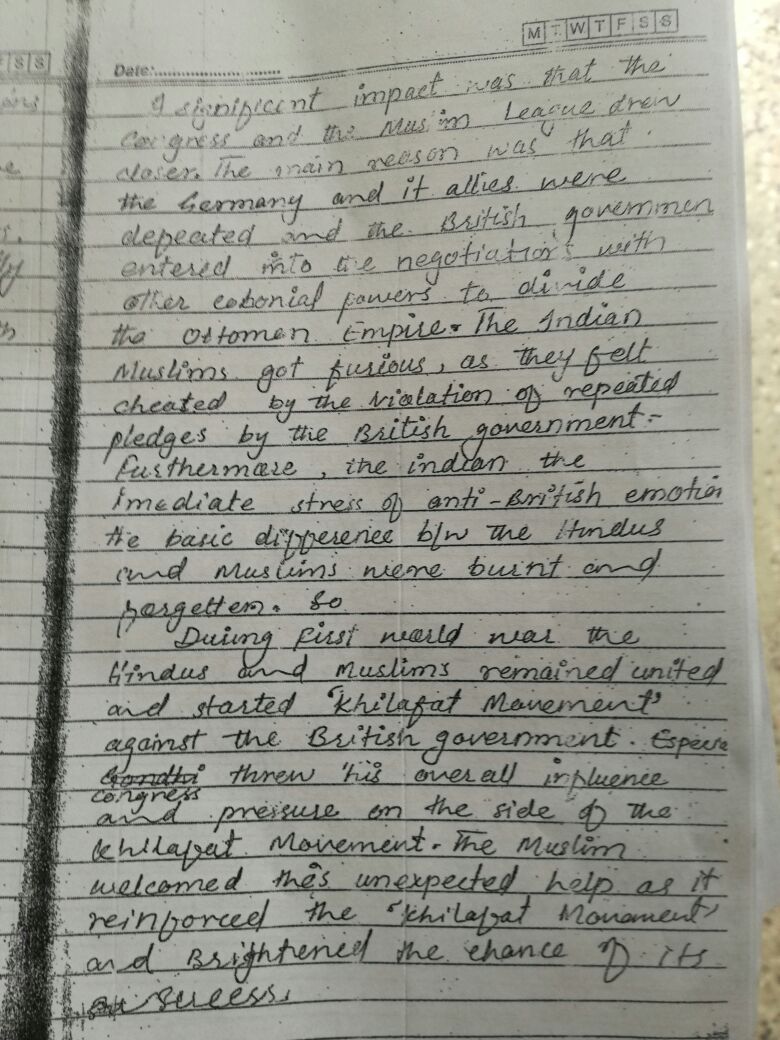 M T W T F S S
S S
Date:
A significent impact was that the
Congress and the Muslim League drew
closer. The main reason was that
the Germany and it allies were
defeated and the British governmen
entered into the negotiations with
other colonial powers to divide
the Ottoman Empire. The Indian
Muslims got furious, as they felt
cheated by the violation of repeated
pledges by the British government.
Furthermore, the indian the
imediate stress of anti-British emotion
the basic difference b/w the Hindus
and Muslims were burnt and
forgetten. So
During First world war the
Hindus and Muslims remained united
and started 'Khilafat Movement'
against the British government. Especia
Gandhi threw his overall influence
congress
and pressure on the side of the
Khilafat Movement. The Muslim
welcomed this unexpected help as it
reinforced the 'Khilafat Movament'
and Brightened the chance of its
sucess.